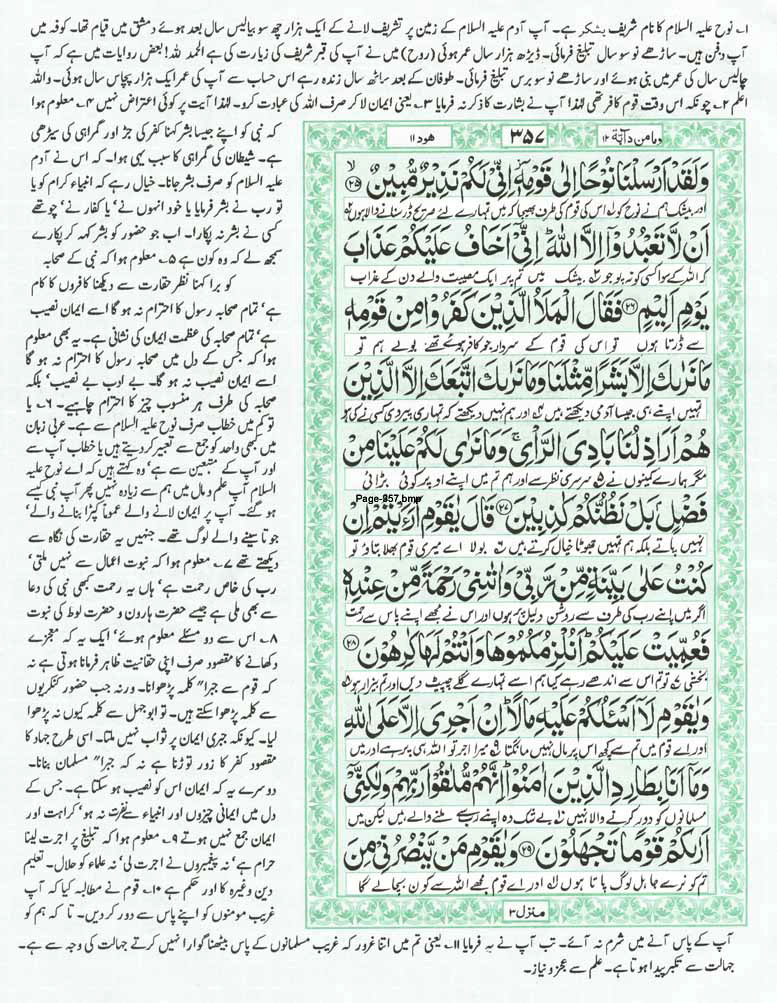 ۱۔ نوح علیہ السلام کا نام شریف یشکر ہے۔ آپ آدم علیہ السلام کے زمین پر تشریف لانے کے ایک ہزار چھ سو بیالیس سال بعد ہوئے دمشق میں قیام تھا۔ کوفہ میں
آپ دفن ہیں۔ ساڑھے نو سو سال تبلیغ فرمائی۔ ڈیڑھ ہزار سال عمر ہوئی (روح) میں نے آپ کی قبر شریف کی زیارت کی ہے الحمد للہ! بعض روایات میں ہے کہ آپ
چالیس سال کی عمر میں نبی ہوئے اور ساڑھے نو سو برس تبلیغ فرمائی۔ طوفان کے بعد ساٹھ سال زندہ رہے اس حساب سے آپ کی عمر ایک ہزار پچاس سال ہوئی۔ واللہ
اعلم ۲۔ چونکہ اس وقت قوم کافر تھی لہذا آپ نے بشارت کا ذکر نہ فرمایا ۳۔ یعنی ایمان لا کر صرف اللہ کی عبادت کرو۔ لہذا آیت پر کوئی اعتراض نہیں ۴۔ معلوم ہوا
ومامن دآبۃ ۱۲
۳۵۷
ھود ۱۱
وَلَقَدْ اَرْسَلْنَا نُوْحًا اِلٰى قَوْمِهٖۤ اِنِّىْ لَكُمْ نَذِيْرٌ مُّبِيْنٌ ۲۵
اور بیشک ہم نے نوح کو اس کی قوم کی طرف بھیجا کہ میں تمہارے لئے صریح ڈر سنانے والا ہوں
اَنْ لَّا تَعْبُدُوْۤا اِلَّا اللّٰهَ اِنِّىْۤ اَخَافُ عَلَيْكُمْ عَذَابَ
کہ اللہ کے سوا کسی کو نہ پوجو بیشک میں تم پر ایک مصیبت والے دن کے عذاب
يَوْمٍ اَلِيْمٍ ۲۶ فَقَالَ الْمَلَاُ الَّذِيْنَ كَفَرُوْا مِنْ قَوْمِهٖ
سے ڈرتا ہوں تو اس کی قوم کے سردار جو کافر ہوئے تھے بولے ہم تو
مَا نَرٰىكَ اِلَّا بَشَرًا مِّثْلَنَا وَمَا نَرٰىكَ اتَّبَعَكَ اِلَّا الَّذِيْنَ
تمہیں اپنے ہی جیسا آدمی دیکھتے ہیں اور ہم نہیں دیکھتے کہ تمہاری پیروی کسی نے کی ہو
هُمْ اَرَاذِلُنَا بَادِىَ الرَّاْىِ وَمَا نَرٰى لَكُمْ عَلَيْنَا مِنْ
مگر ہمارے کمینوں نے سرسری نظر سے اور ہم تم میں اپنے اوپر کوئی بڑائی
فَضْلٍۭ بَلْ نَظُنُّكُمْ كٰذِبِيْنَ ۲۷ قَالَ يٰقَوْمِ اَرَءَيْتُمْ اِنْ
Page-357.bmp
نہیں پاتے بلکہ ہم تمہیں جھوٹا خیال کرتے ہیں بولا اے میری قوم بھلا بتاؤ تو
كُنْتُ عَلٰى بَيِّنَةٍ مِّنْ رَّبِّىْ وَاٰتٰىنِىْ رَحْمَةً مِّنْ عِنْدِهٖ
اگر میں اپنے رب کی طرف سے روشن دلیل پر ہوں اور اس نے مجھے اپنے پاس سے رحمت
فَعُمِّيَتْ عَلَيْكُمْ اَنُلْزِمُكُمُوْهَا وَاَنْتُمْ لَهَا كٰرِهُوْنَ ۲۸
بخشی تو تم اس سے اندھے رہے کیا ہم اسے تمہارے گلے چپیٹ دیں اور تم بیزار ہو
وَيٰقَوْمِ لَاۤ اَسْـَٔلُكُمْ عَلَيْهِ مَالًا اِنْ اَجْرِىَ اِلَّا عَلَى اللّٰهِ
اور اے قوم میں تم سے کچھ اس پر مال نہیں مانگتا میرا اجر تو اللہ ہی پر ہے اور میں
وَمَاۤ اَنَا بِطَارِدِ الَّذِيْنَ اٰمَنُوْا اِنَّهُمْ مُّلٰقُوْا رَبِّهِمْ وَلٰكِنِّىْۤ
مسلمانوں کو دور کرنے والا نہیں بے شک وہ اپنے رب سے ملنے والے ہیں لیکن میں
اَرٰىكُمْ قَوْمًا تَجْهَلُوْنَ ۲۹ وَيٰقَوْمِ مَنْ يَّنْصُرُنِىْ مِنَ
تم کو نرے جاہل لوگ پاتا ہوں اور اے قوم مجھے اللہ سے کون بچالے گا
منزل ۳
کہ نبی کو اپنے جیسا بشر کہنا کفر کی جڑ اور گمراہی کی سیڑھی
ہے۔ شیطان کی گمراہی کا سبب یہی ہوا۔ کہ اس نے آدم
علیہ السلام کو صرف بشر جانا۔ خیال رہے کہ انبیاء کرام کو یا
تو رب نے بشر فرمایا یا خود انہوں نے‘ یا کفار نے‘ چوتھے
کسی نے بشر نہ پکارا۔ اب جو حضور کو بشر کہہ کر پکارے
سمجھ لے کہ وہ کون ہے ۵۔ معلوم ہوا کہ نبی کے صحابہ
کو برا کہنا نظر حقارت سے دیکھنا کافروں کا کام
ہے‘ تمام صحابہ رسول کا احترام نہ ہو گا اسے ایمان نصیب
ہے‘ تمام صحابہ کی عظمت ایمان کی نشانی ہے۔ یہ بھی معلوم
ہوا کہ جس کے دل میں صحابہ رسول کا احترام نہ ہو گا
اسے ایمان نصیب نہ ہو گا۔ بے ادب بے نصیب‘ بلکہ
صحابہ کی طرف ہر منسوب چیز کا احترام چاہیے۔ ۶۔ یا
تو کم میں خطاب صرف نوح علیہ السلام سے ہے۔ عربی زبان
میں کبھی واحد کو جمع سے تعبیر کر دیتے ہیں یا خطاب آپ سے
اور آپ کے متبعین سے ہے‘ وہ کہتے ہیں کہ اے نوح علیہ
السلام آپ علم و مال میں ہم سے زیادہ نہیں پھر آپ نبی کیسے
ہو گئے۔ آپ پر ایمان لانے والے عموماً کپڑا بنانے والے‘
جوتا سینے والے لوگ تھے۔ جنہیں یہ حقارت کی نگاہ سے
دیکھتے تھے ۷۔ معلوم ہوا کہ نبوت اعمال سے نہیں ملتی‘
رب کی خاص رحمت ہے‘ ہاں یہ رحمت کبھی نبی کی دعا
سے بھی ملی ہے جیسے حضرت ہارون و حضرت لوط کی نبوت
۸۔ اس سے دو مسئلے معلوم ہوئے‘ ایک یہ کہ معجزے
دکھانے کا مقصود صرف اپنی حقانیت ظاہر فرمانا ہوتی ہے نہ
کہ قوم سے جبرا" کلمہ پڑھوانا۔ ورنہ جب حضور کنکریوں
سے کلمہ پڑھوا سکتے ہیں۔ تو ابوجہل سے کلمہ کیوں نہ پڑھوا
لیا۔ کیونکہ جبری ایمان پر ثواب نہیں ملتا۔ اسی طرح جہاد کا
مقصود کفر کا زور توڑنا ہے نہ کہ جبرا" مسلمان بنانا۔
دوسرے یہ کہ ایمان اس کو نصیب ہو سکتا ہے۔ جس کے
دل میں ایمانی چیزوں اور انبیاء سے نفرت نہ ہو‘ کراہت اور
ایمان جمع نہیں ہوتے ۹۔ معلوم ہوا کہ تبلیغ پر اجرت لینا
حرام ہے‘ نہ پیغمبروں نے اجرت لی‘ نہ علماء کو حلال۔ تعلیم
دین وغیرہ کا اور حکم ہے ۱۰۔ قوم نے مطالبہ کیا کہ آپ
غریب مومنوں کو اپنے پاس سے دور کر دیں۔ تا کہ ہم کو
آپ کے پاس آنے میں شرم نہ آئے۔ تب آپ نے یہ فرمایا ۱۱۔ یعنی تم میں اتنا غرور کہ غریب مسلمانوں کے پاس بیٹھنا گوارا نہیں کرتے جہالت کی وجہ سے ہے۔
جہالت سے تکبر پیدا ہوتا ہے۔ علم سے عجز و نیاز۔